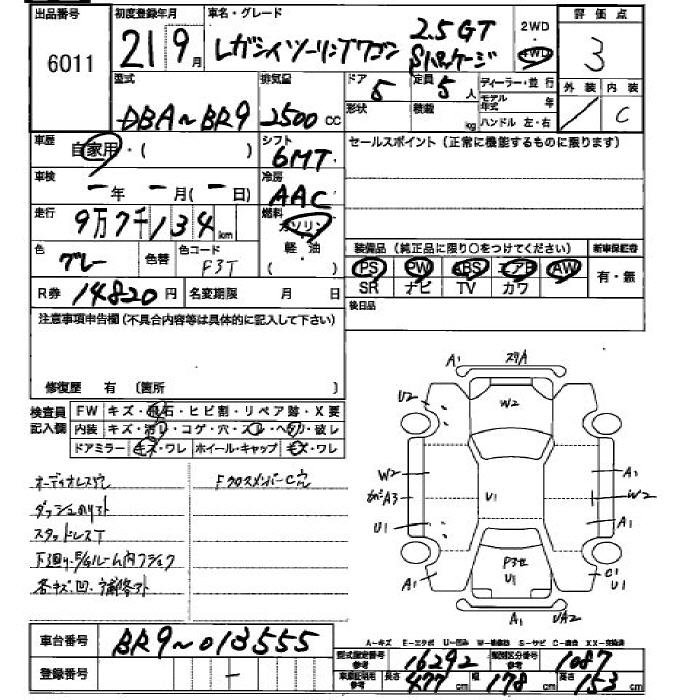 出品番号 初度登録年月 車名・グレード 評価点
6011 21 9月 レガシイツーリングワゴン 2.5GT Sパッケージ 2WD 4WD 3
型式 排気量 ドア 定員 ディーラー・並行 外装 内装
DBA~BR9 2500cc 5 5人 モデル年式 年 C
形状 積載 kg ハンドル 左・右
車歴 自家用・( ) シフト 6MT セールスポイント(正常に機能するものに限ります)
車検 ー年 ー月(ー日) 冷房 AAC
走行 9万7千134km 燃料 ガソリン
色 グレー 色替 色コード F3T 軽・油 ( ) 装備品(純正品に限り○をつけてください) 新車保証書
PS PW ABS エアB AW 有・無
R券 14820円 名変期限 月 日 SR ナビ TV カワ
後日品
注意事項申告欄(不具合内容等は具体的に記入して下さい)
修復歴 有 (箇所 )
検査員記入欄 FW キズ・飛石・ヒビ割・リペア跡・X要
内装 キズ・汚レ・コゲ・穴・スレ・ヘタリ・破レ
ドアミラー キズ・ワレ ホイール・キャップ キズ・ワレ
オーディオレス穴 FクロスメンバーC穴
ダッシュのリスト
スタッドレスT
各キズ・凹・補修
A1 スリA
U2 W2
W2 A1
A3 U1 W2
U1 A1
A1 P3 U1 C1 U1
A1 UA2
A-キズ E-エクボ U-凹み W-補修跡 S-サビ C-腐食 XX-交換済
車台番号 BR9~013555 型式指定番号 参考 16292 類別区分番号 参考 1087
登録番号 ー 車庫証明用 参考 長さ 477cm 幅 178cm 高さ 153cm